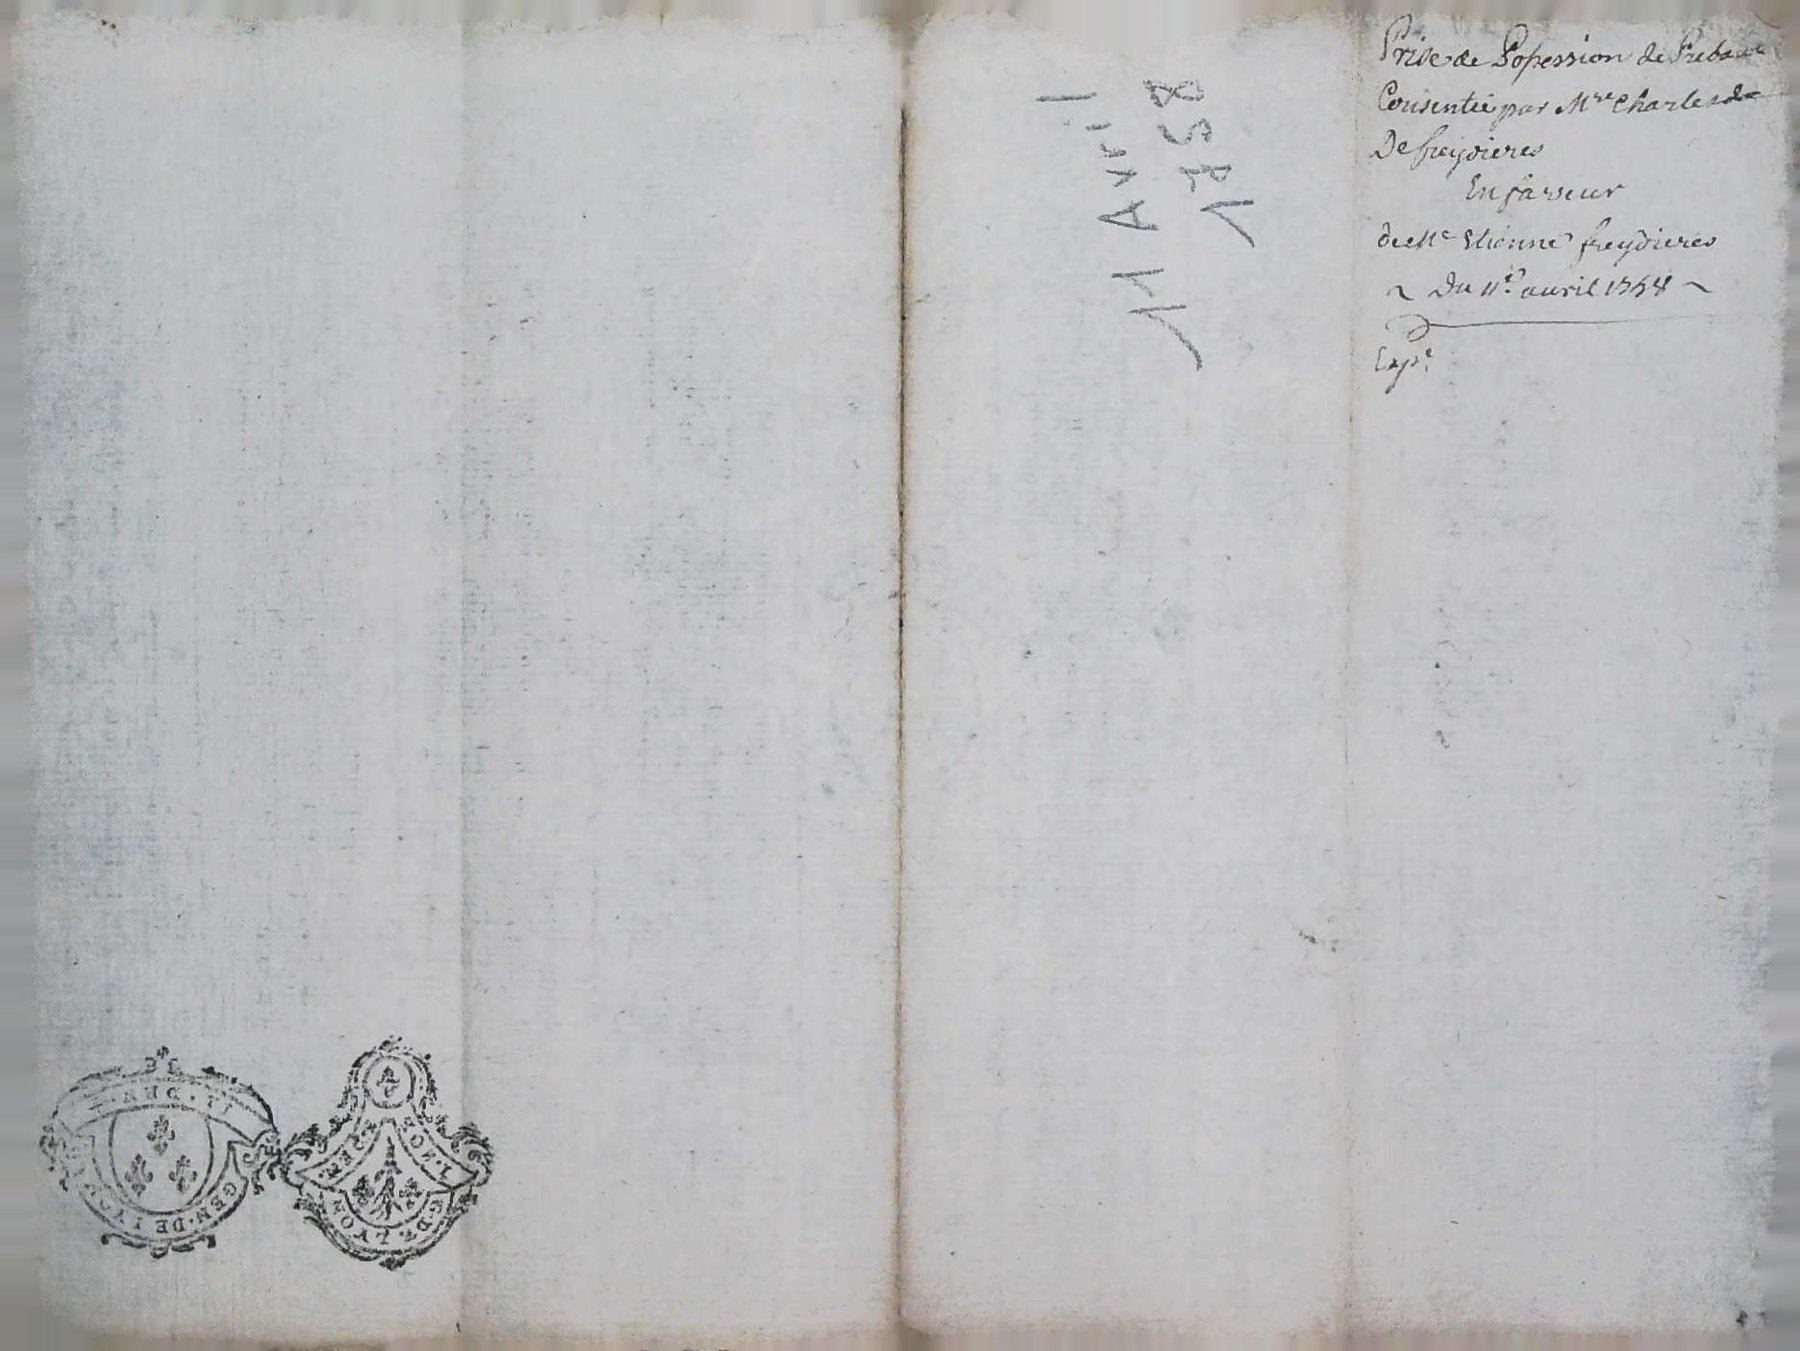 Prise de Possession de Prebande
Consentie par Mre Charles de
De freydieres
En faveur
de Me Etienne freydieres
~ Du 11e avril 1758 ~
Expe
11 Avril
1758
GEN · DE LYON
G · D · LYON